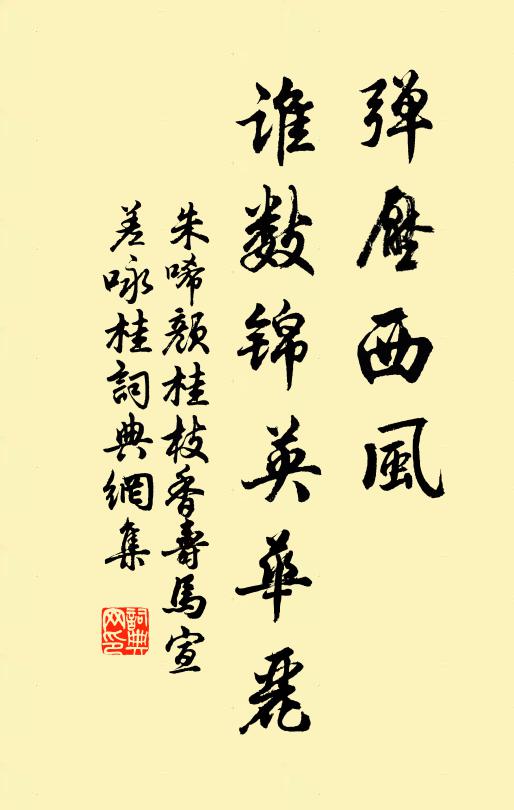 彈壓西風
誰數錦英華麗
朱唏顏桂枝香壽馬宣
差咏桂詞典網集
詞典
网印